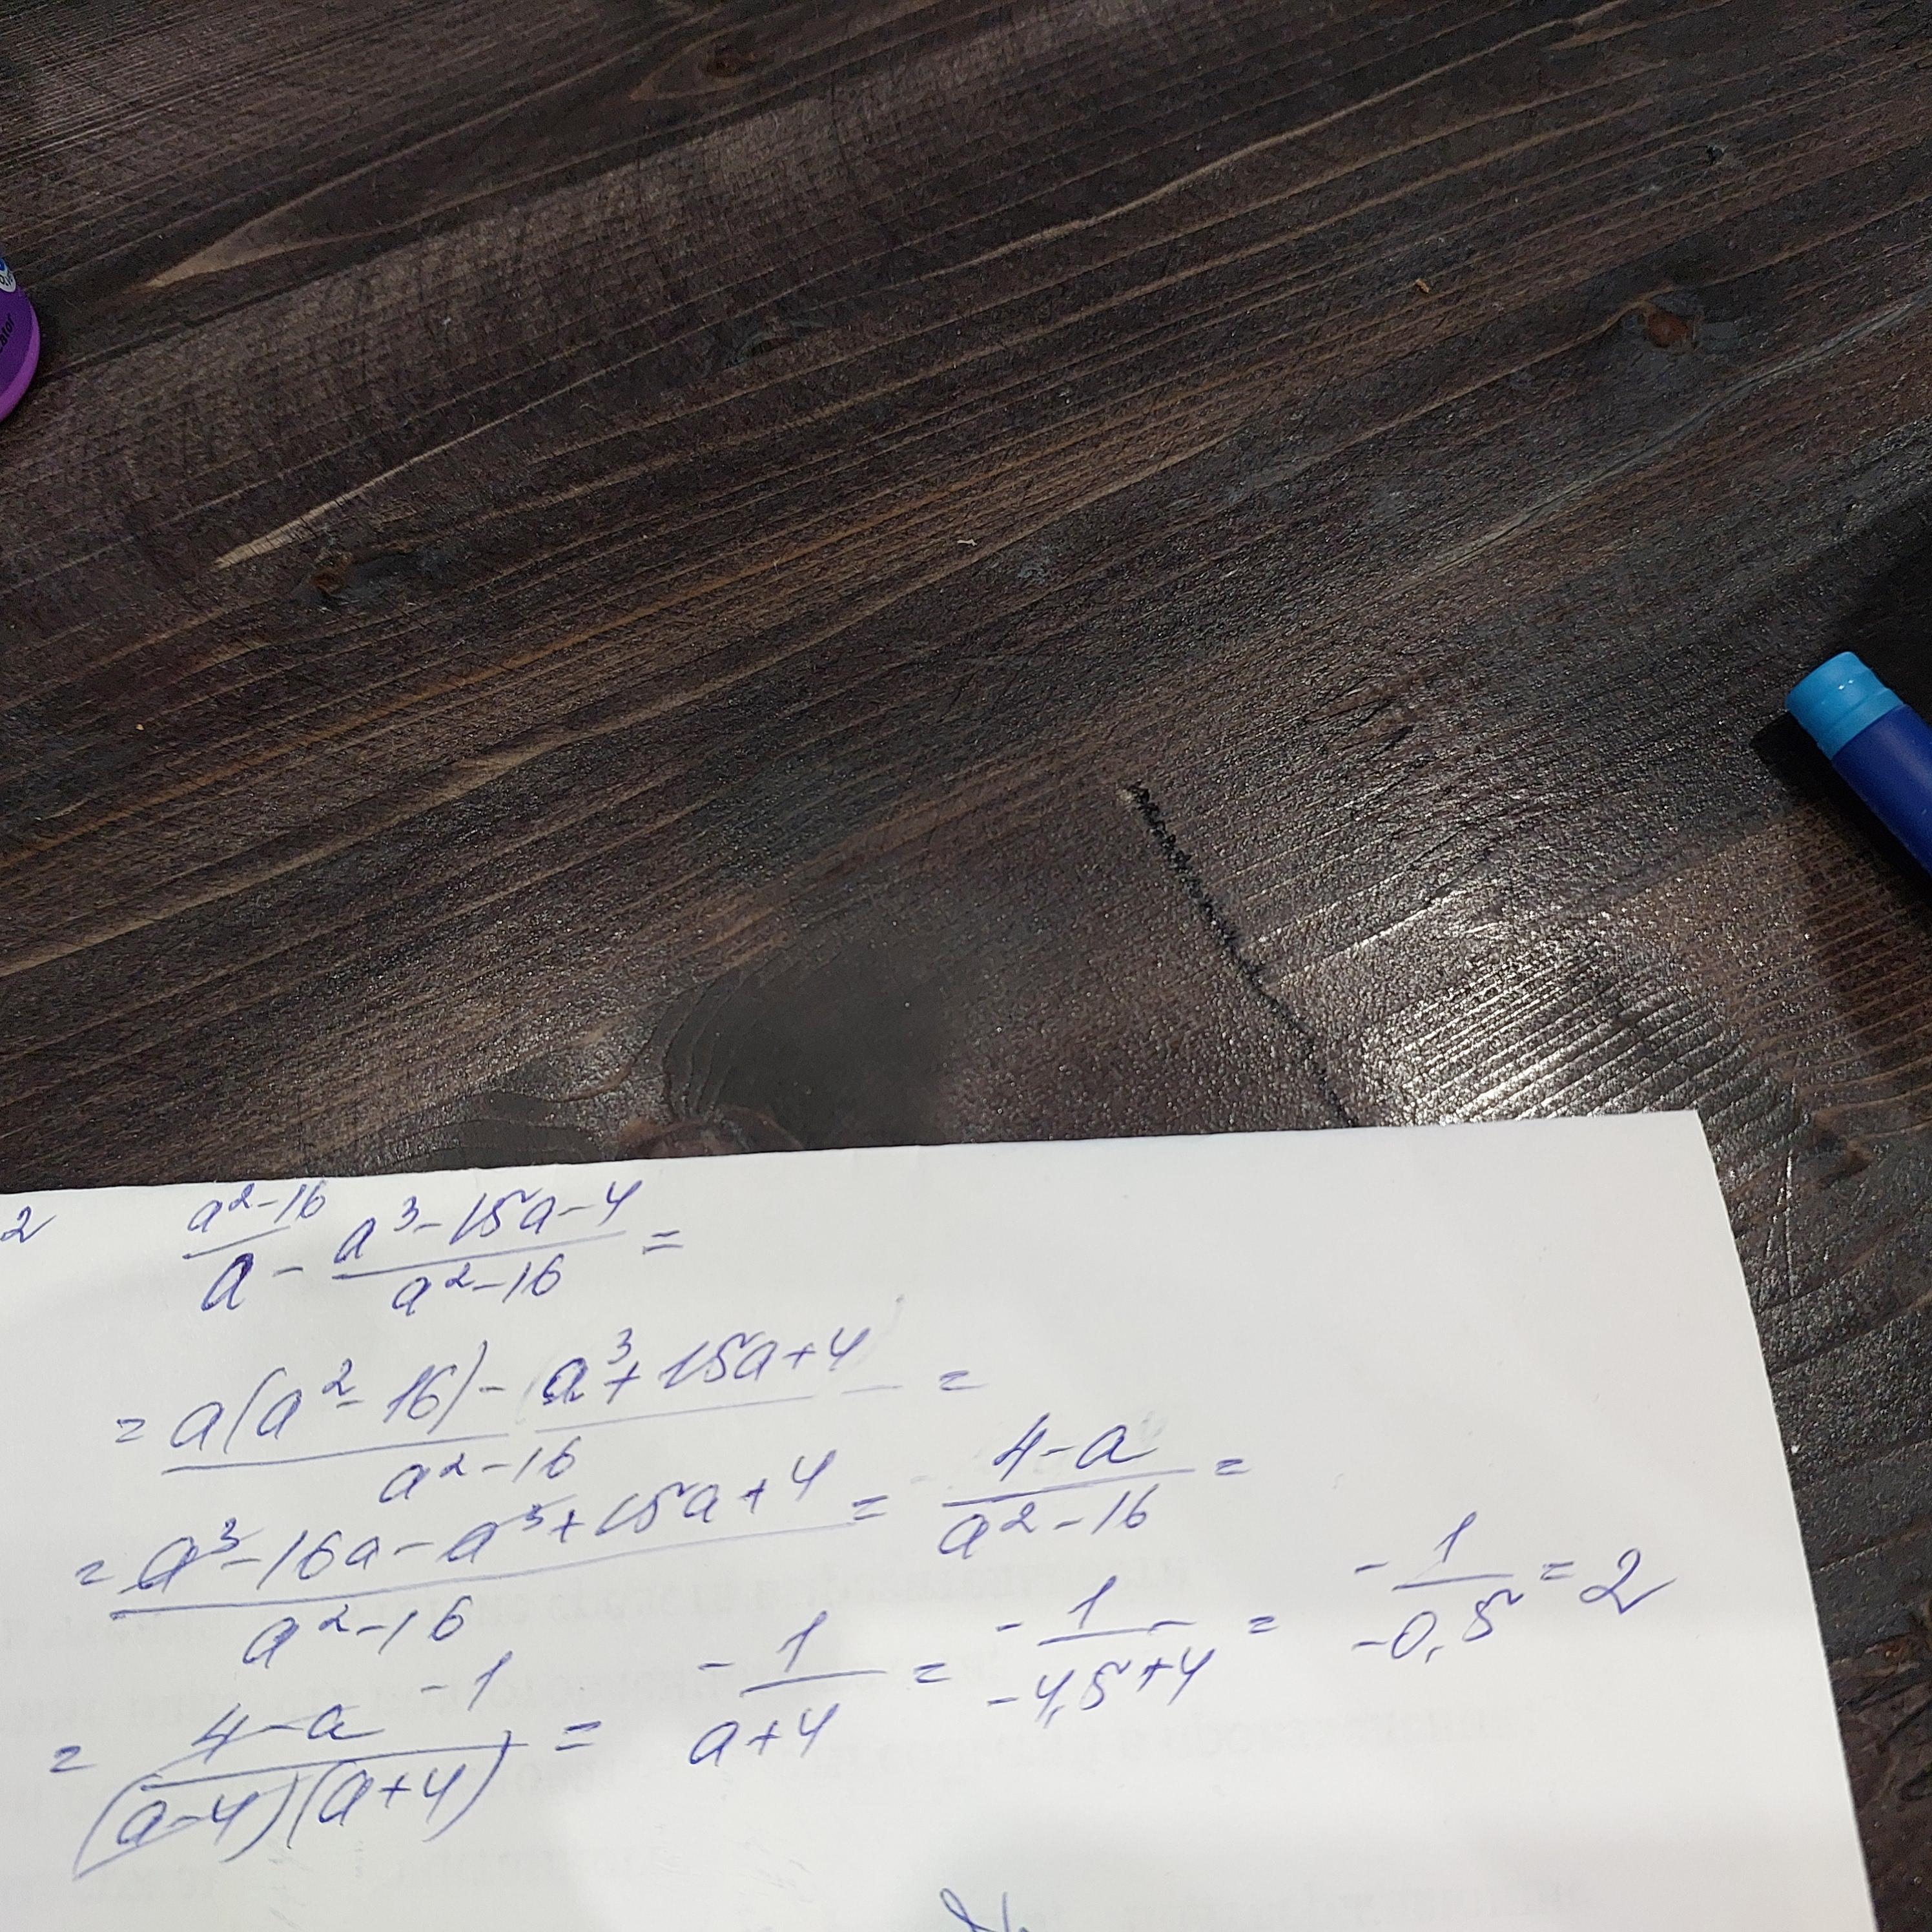 2 a²-16/a - a³-15a-4/a²-16 =
= a(a²-16) - a³+15a+4/a²-16 =
= a³-16a-a³+15a+4/a²-16 = 4-a/a²-16 =
= 4-a -1/(a-4)(a+4) = -1/a+4 = -1/-4,5+4 = -1/-0,5 = 2